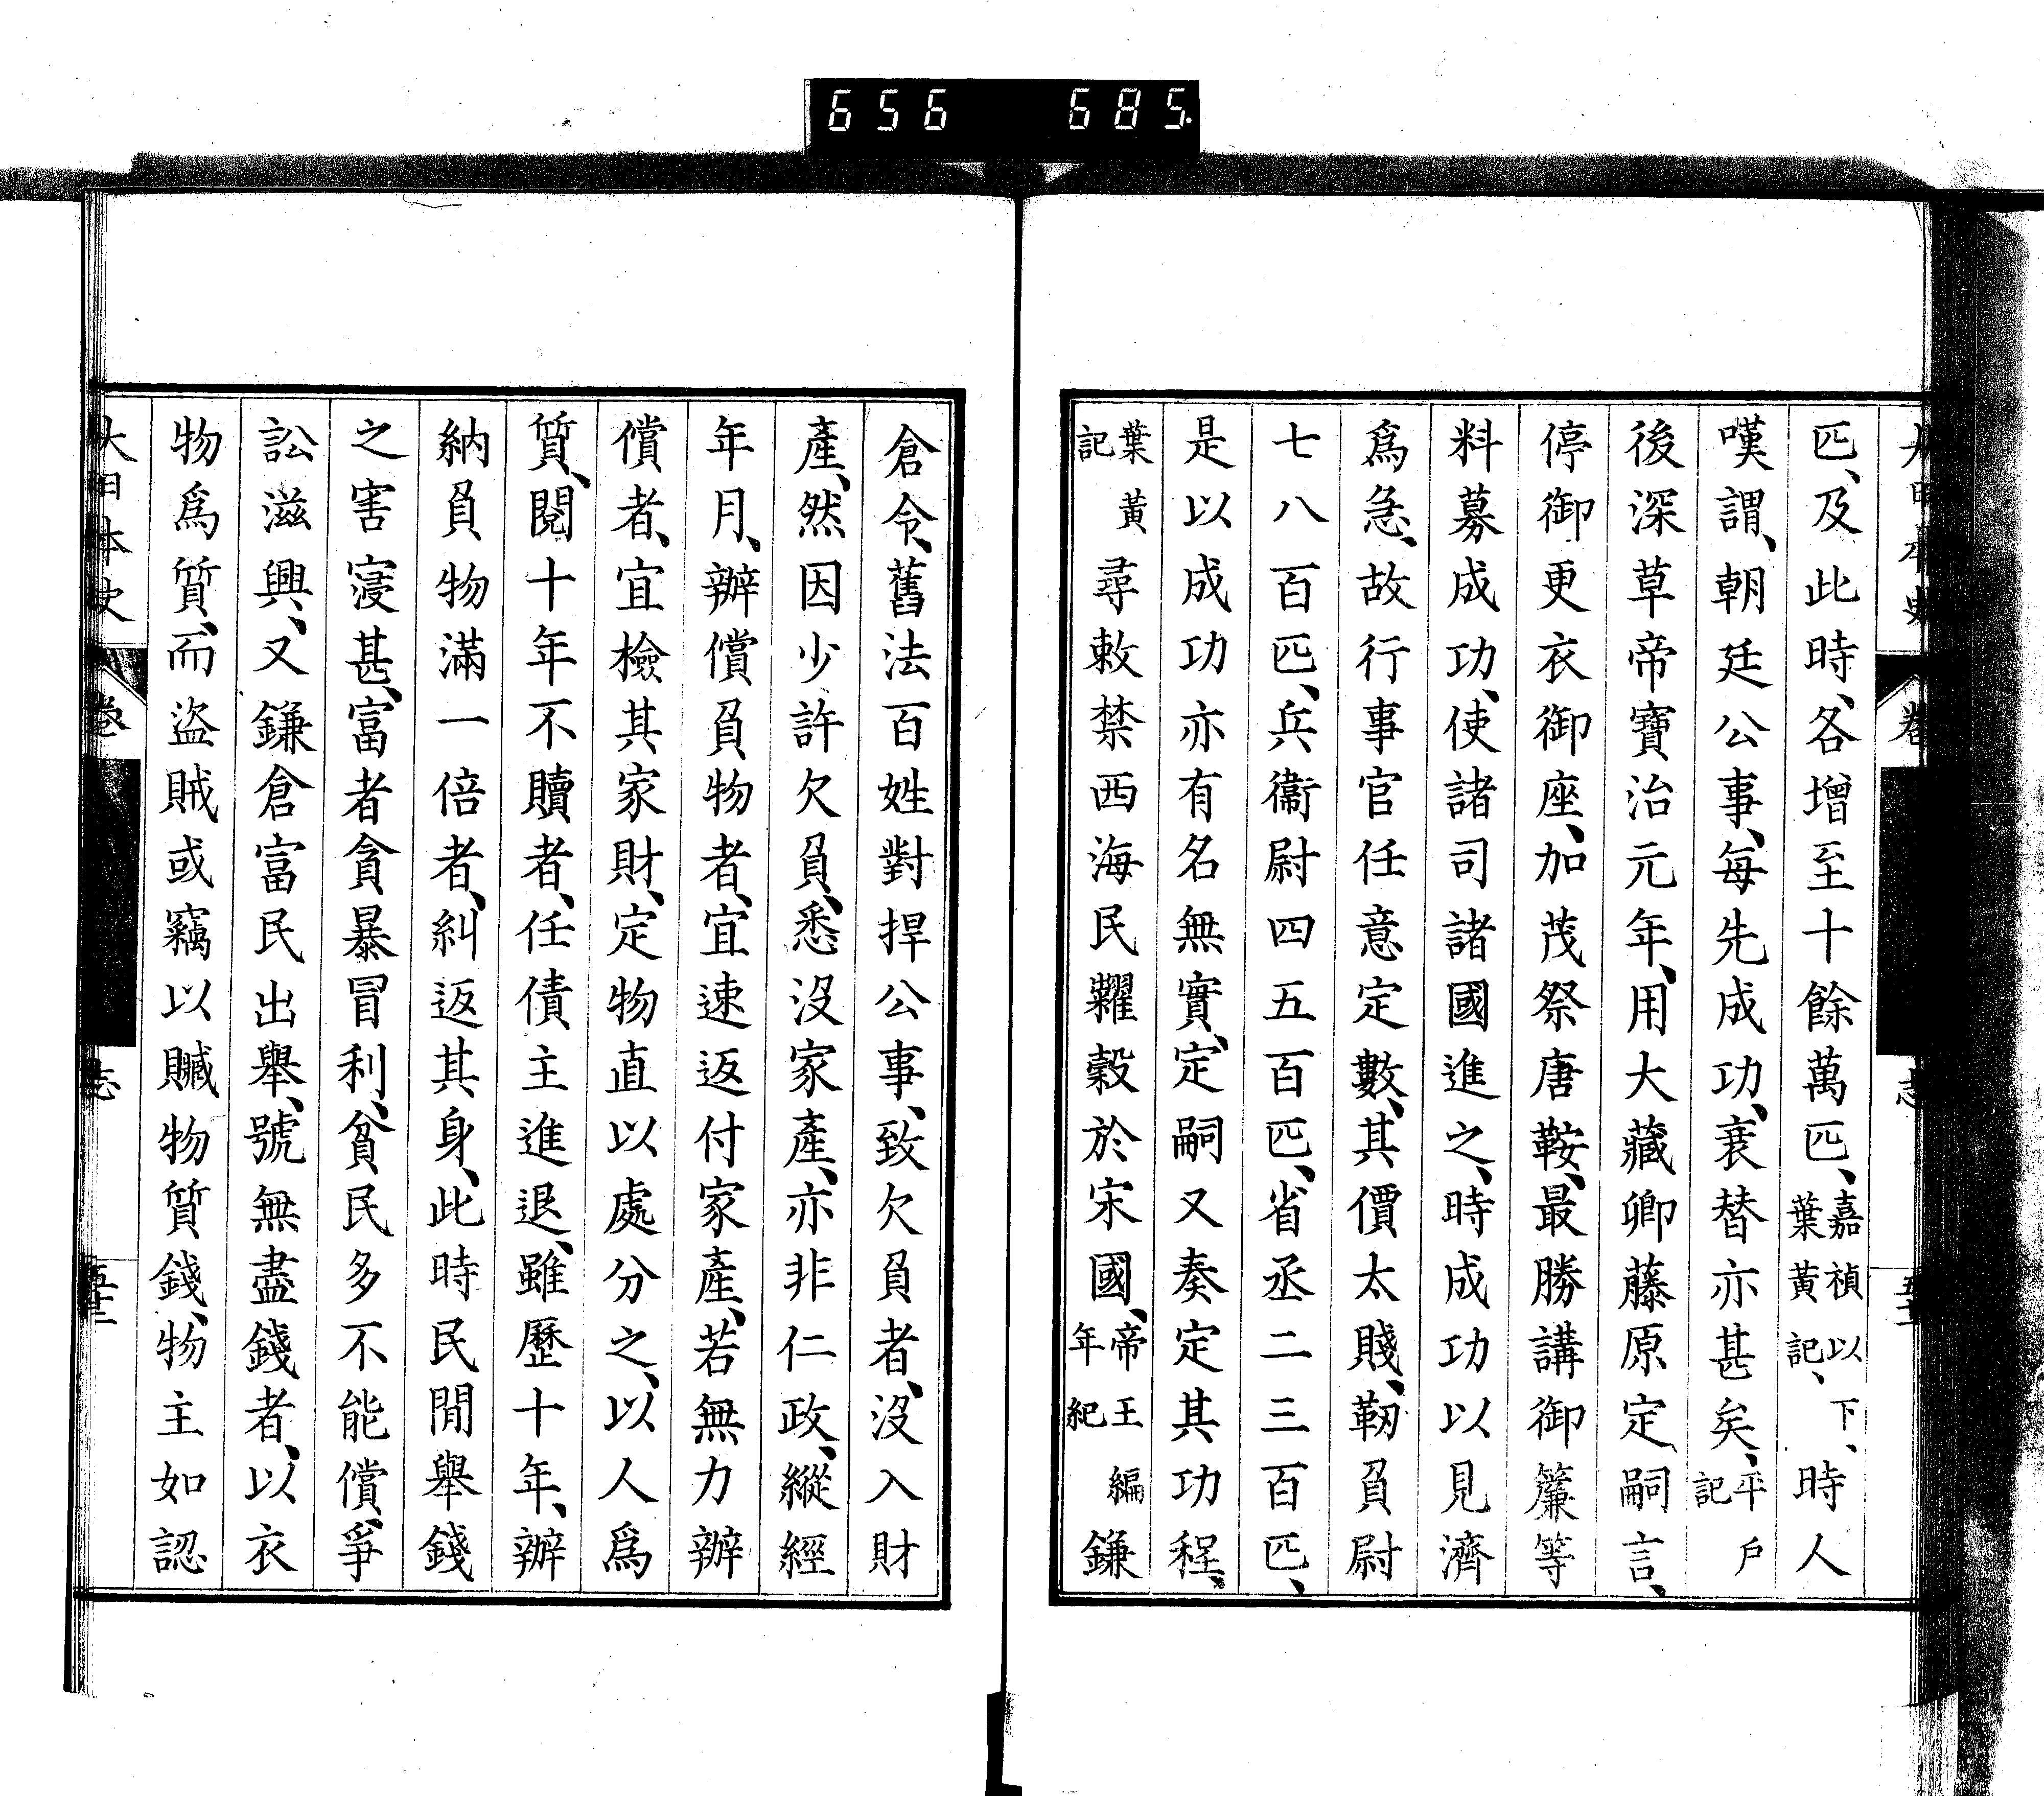 656 685
大日本史 卷 志
匹、及此時、各增至十餘萬匹、嘉禎以下、葉黃記、時人
嘆謂、朝廷公事、每先成功、衰替亦甚矣、平戶記
後深草帝寶治元年、用大藏卿藤原定嗣言、
停御更衣御座、加茂祭唐鞍、最勝講御簾等
料募成功、使諸司諸國進之、時成功以見濟
爲急、故行事官任意定數、其價太賤、靭負尉
七八百匹、兵衞尉四五百匹、省丞二三百匹、
是以成功亦有名無實、定嗣又奏定其功程、
葉黃記尋敕禁西海民糶穀於宋國、帝王編年紀鎌
倉令、舊法百姓對捍公事、致欠負者、沒入財
產、然因少許欠負、悉沒家產、亦非仁政、縱經
年月、辦償負物者、宜速返付家產、若無力辦
償者、宜檢其家財、定物直以處分之、以人爲
質、閱十年不贖者、任債主進退、雖歷十年、辦
納負物滿一倍者、糾返其身、此時民閒舉錢
之害寖甚、富者貪暴冒利、貧民多不能償、爭
訟滋興、又鎌倉富民出舉、號無盡錢者、以衣
物爲質、而盜賊或竊以贓物質錢、物主如認
大日本史 卷 志